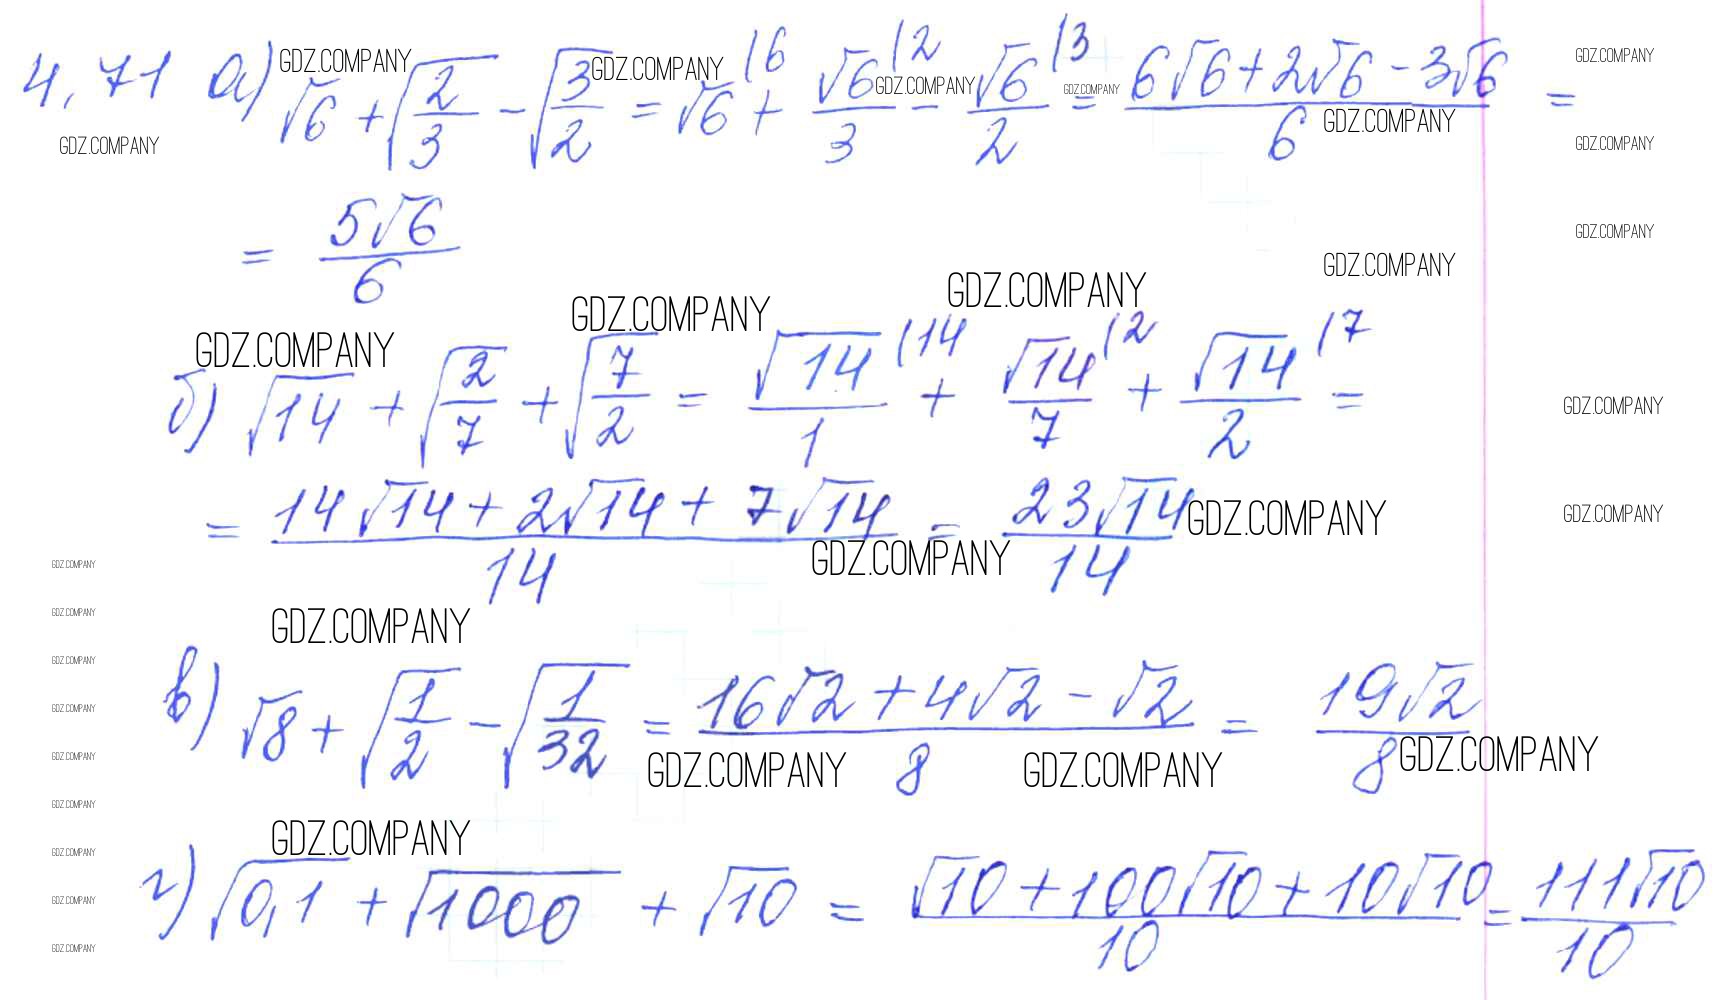 4.71 а) √6 + √(2/3) - √(3/2) = √6 |6 + √6/3 |2 - √6/2 |3 = (6√6 + 2√6 - 3√6)/6 =
= 5√6/6
б) √14 + √(2/7) + √(7/2) = √14/1 |14 + √14/7 |2 + √14/2 |7 =
= (14√14 + 2√14 + 7√14)/14 = 23√14/14
в) √8 + √(1/2) - √(1/32) = (16√2 + 4√2 - √2)/8 = 19√2/8
г) √0,1 + √1000 + √10 = (√10 + 100√10 + 10√10)/10 = 111√10/10
GDZ.COMPANY